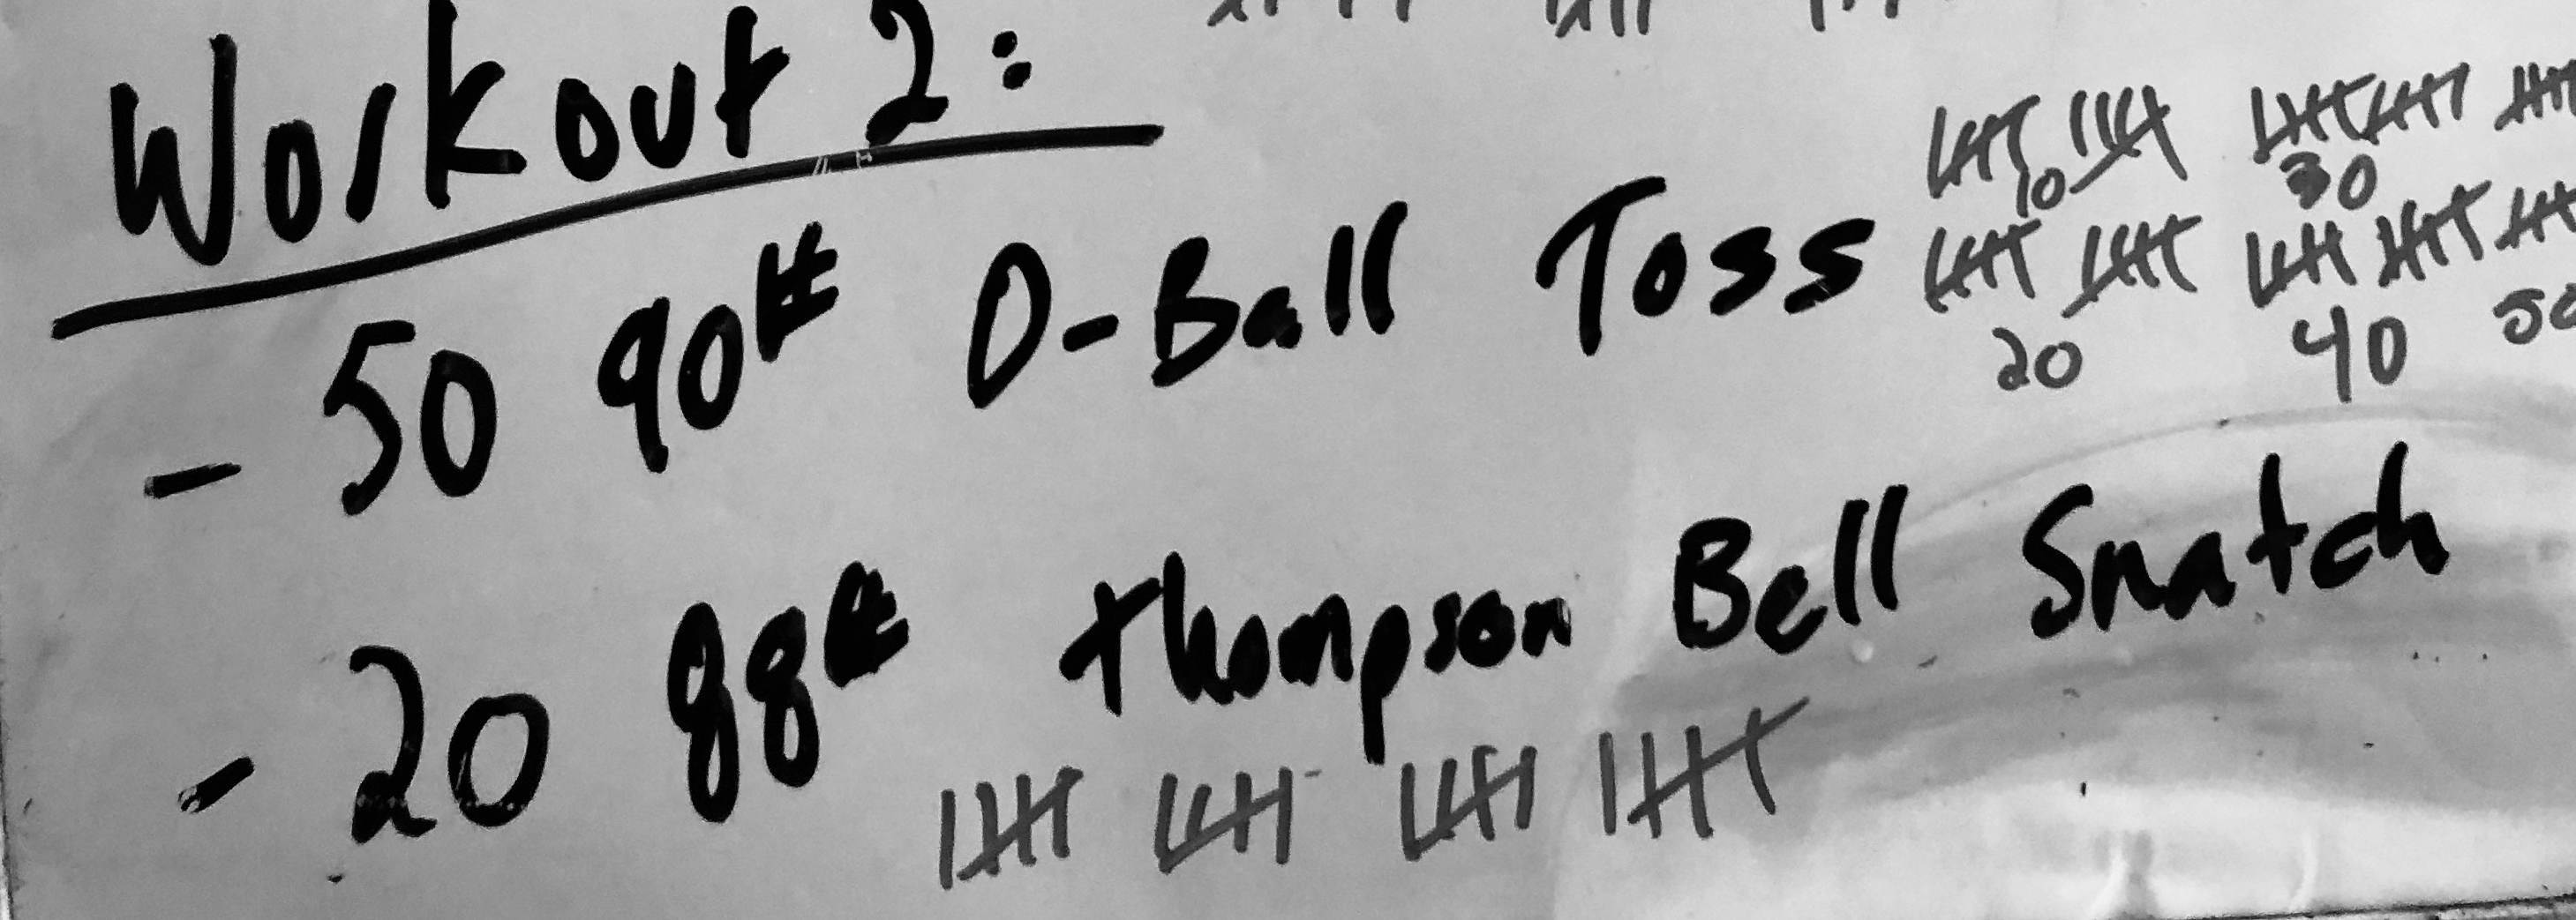 Workout 2:
- 50 90# D-Ball Toss
10 30
20 40 50
- 20 88# Thompson Bell Snatch